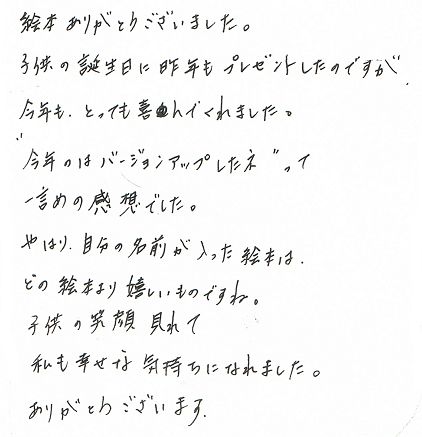 絵本ありがとうございました。
子供の誕生日に昨年もプレゼントしたのですが
今年も、とっても喜んでくれました。
"今年のはバージョンアップしたネ"って
一言めの感想でした。
やはり、自分の名前が入った絵本は、
どの絵本より嬉しいものですね。
子供の笑顔見れて
私も幸せな気持ちになれました。
ありがとうございます。